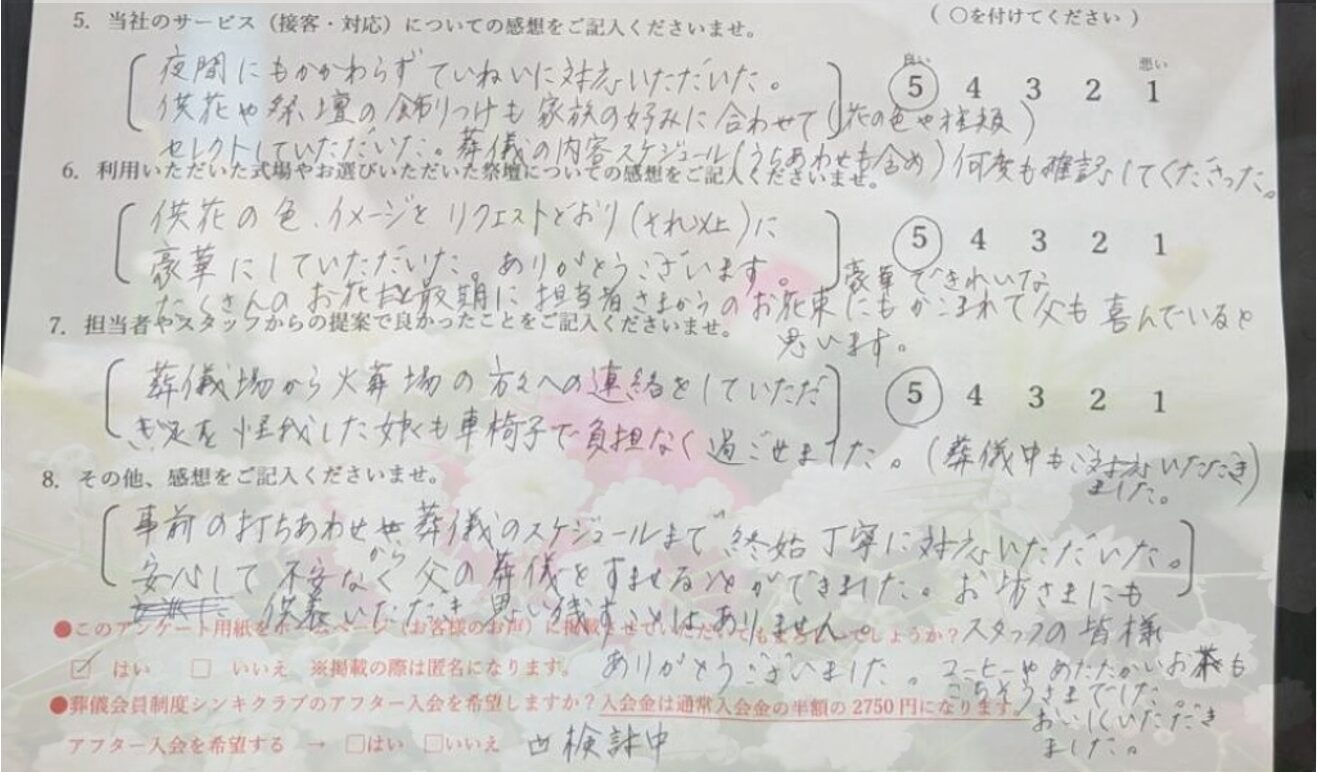 5. 当社のサービス（接客・対応）についての感想をご記入くださいませ。
（ ○を付けてください ）
良い 悪い
5 4 3 2 1
夜間にもかかわらずていねいに対応いただいた。
供花や祭壇の飾りつけも家族の好みに合わせて（花の色や種類）
セレクトしていただいた。葬儀の内容スケジュール（うちあわせも含め）何度も確認してくださった。
6. 利用いただいた式場やお選びいただいた祭壇についての感想をご記入くださいませ。
供花の色、イメージをリクエストどおり（それ以上）に
5 4 3 2 1
豪華にしていただいた。ありがとうございます。豪華できれいな
たくさんのお花と最期に担当者さまからのお花束にもかこまれて父も喜んでいると
思います。
7. 担当者やスタッフからの提案で良かったことをご記入くださいませ。
葬儀場から火葬場の方々への連絡をしていただ
5 4 3 2 1
き足を怪我した娘も車椅子で負担なく過ごせました。（葬儀中もご対応いただき
ました。）
8. その他、感想をご記入くださいませ。
事前の打ちあわせ葬儀のスケジュールまで終始丁寧に対応いただいた。
から
安心して不安なく父の葬儀をすませることができました。お坊さまにも
供養いただき思い残すことはありません。スタッフの皆様
●このアンケート用紙をホームページ（お客様のお声）に掲載させていただいてもよろしいでしょうか？
☑ はい □ いいえ ※掲載の際は匿名になります。
ありがとうございました。コーヒーやあたたかいお茶も
ごちそうさまでした。
おいしくいただき
ました。
●葬儀会員制度シンキクラブのアフター入会を希望しますか？入会金は通常入会金の半額の2750円になります。
アフター入会を希望する → □はい □いいえ ☑検討中